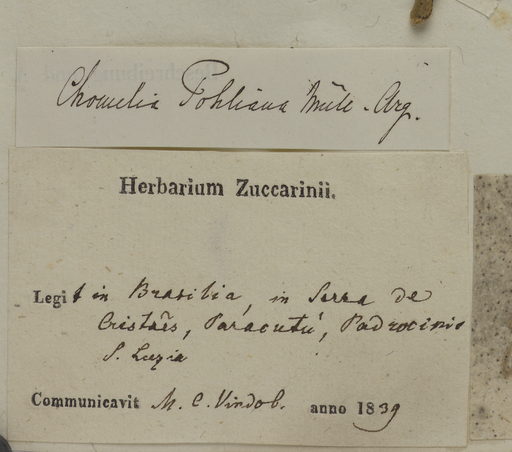 Chomelia Pohliana Müll. Arg.
Herbarium Zuccarinii.
Legit in Brasilia, in Serra de
Cristaẽs, Paracutú, Padrocinio
S. Luzia
Communicavit M. C. Vindob. anno 1839